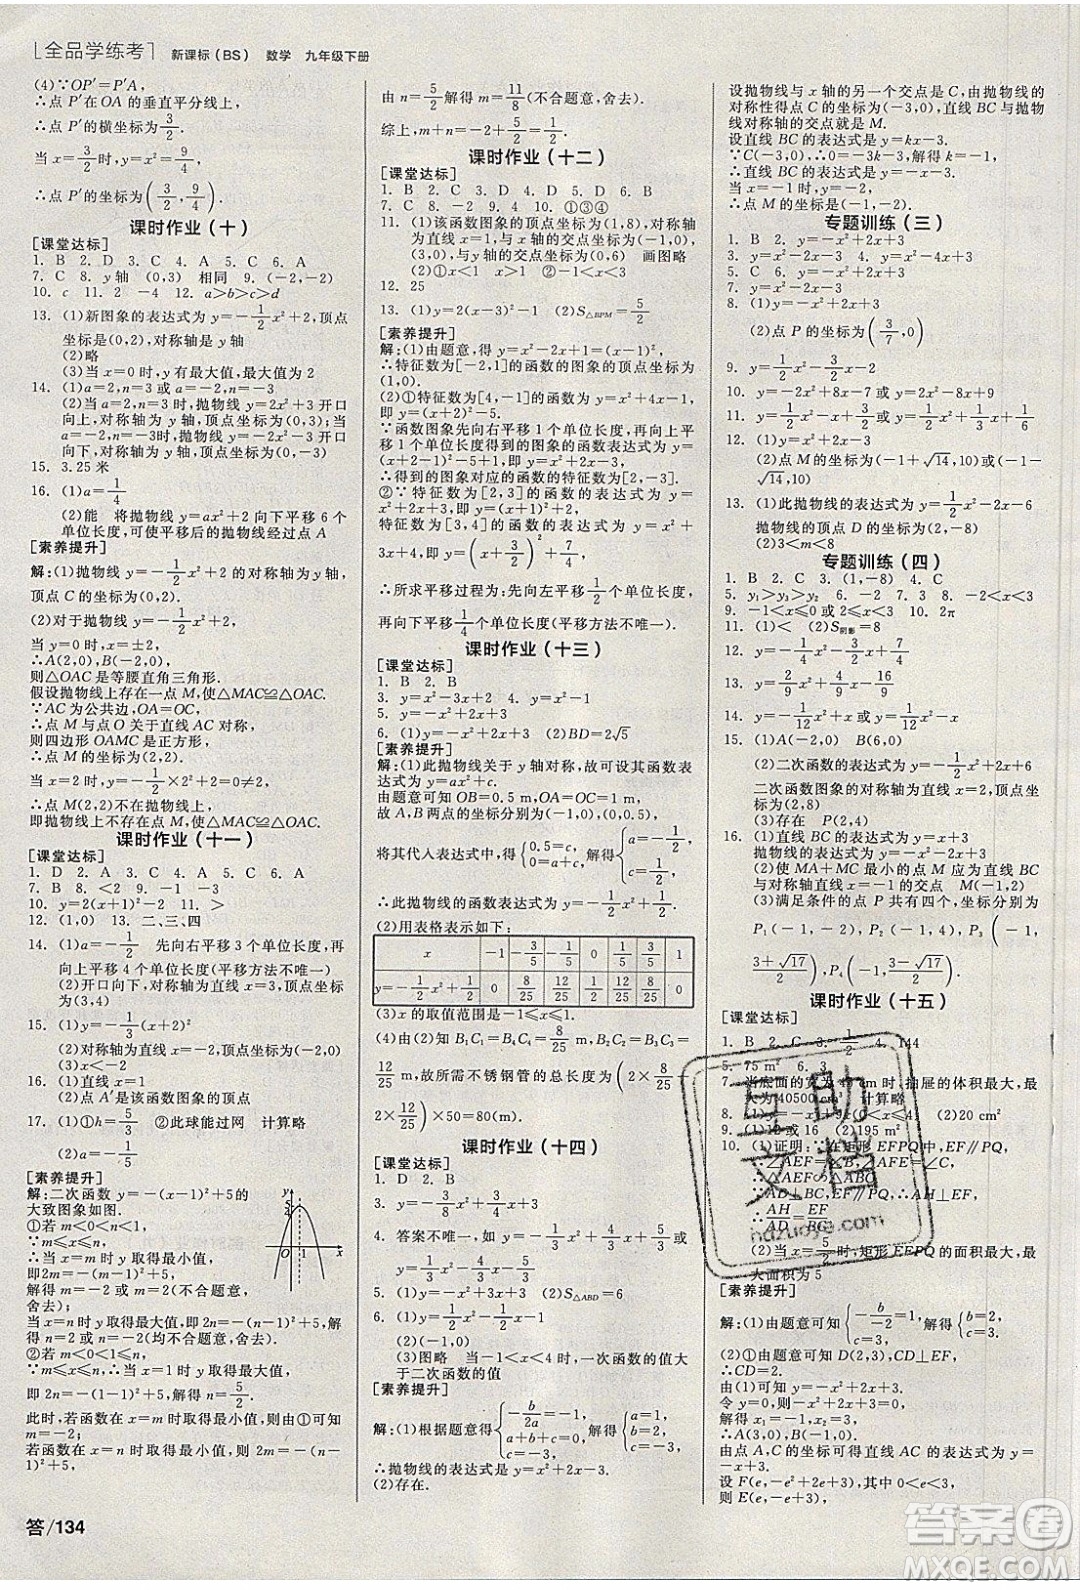 [全品学练考] 新课标(BS) 数学 九年级下册
(4)∵OP′=P′A,
∴点 P′在 OA 的垂直平分线上,
∴点 P′的横坐标为3/2.
当 x=3/2时,y=x²=9/4,
∴点 P′的坐标为(3/2,9/4).
课时作业(十)
[课堂达标]
1. B 2. D 3. C 4. A 5. C 6. A
7. C 8. y轴 (0,3) 相同 9. (-2,-2)
10. c 11. 2 -4 12. a>b>c>d
13. (1)新图象的表达式为 y=-1/2x²+2,顶点
坐标是(0,2),对称轴是 y 轴
(2)略
(3)当 x=0 时,y 有最大值,最大值为 2
14. (1)a=2,b=-3,m=5
(2)当 a=2,b=5时,抛物线 y=2x²+5 开口
向上,对称轴为 y 轴,顶点坐标为(0,5);当
a=2,b=-3时,抛物线 y=-2x²-3 开口
向下,对称轴为 y 轴,顶点坐标为(0,-3)
15. 3.25 米
16. (1)a=1/4
(2)能 将抛物线 y=ax²+2 向下平移 6 个
单位长度,可使平移后的抛物线经过点 A
[素养提升]
解:(1)抛物线 y=-1/2x²+2 的对称轴为 x=0,
顶点 C 的坐标为(0,2).
(2)对于抛物线 y=-1/2x²+2,
当 y=0 时,-1/2x²+2=0,
∴A(2,0),B(-2,0),
∴△OAC 是等腰直角三角形.
假设抛物线上存在一点 M,使△MAC≌△OAC.
∵AC 为公共边,OA=OC,
∴点 M 与点 O 关于直线 AC 对称,
则四边形 OAMC 是正方形,
∴点 M 的坐标为(2,2).
当 x=2 时,y=-1/2×2²+2=0≠2,
∴点 M(2,2)不在抛物线上,
即抛物线上不存在点 M,使△MAC≌△OAC.
课时作业(十一)
[课堂达标]
1. D 2. A 3. C 4. A 5. C 6. A
7. B 8. <2 9. -3
10. y=2(x+1)²-2 11. >
12. (1,0) 13. 二、三、四
14. (1)a=-1/2 先向右平移 3 个单位长度,再
向上平移 4 个单位长度(平移方法不唯一)
(2)开口向下,对称轴为直线 x=3,顶点坐标
为(3,4)
15. (1)y=-1/3(x+2)²
(2)对称轴为直线 x=-2,顶点坐标为(-2,0)
(3)x<-2
16. (1)直线 x=1
(2)点 A′是该函数图象的顶点
17. (1)①h=5/3 ②此球能过网 计算略
(2)a=-1/5
[素养提升]
解:二次函数 y=-(x-1)²+5 的
大致图象如图:
①若 m<0<n<1,
∵m≤x≤n,
∴当 x=m 时 y 取得最小值,
即2m=-(m-1)²+5,
解得 m=-2 或 m=2(不合题意,
舍去);
当 x=n时 y 取得最大值,即2n=-(n-1)²+5,
解得 n=2 或 n=-2(均不合题意,舍去).
②若 m<0<1≤n,
∵m≤x≤n,∴当 x=1时 y 取得最大值,
即 2n=-(1-1)²+5,解得 n=5/2.
此时,若函数在 x=m 时取得最小值,
则 m=-2;
若函数在 x=n 时取得最小值,则 2m=-(n-1)²+5,
答/134
由 n=5/2解得 m=11/8(不合题意,舍去).
综上,m+n=-2+5/2=1/2.
课时作业(十二)
[课堂达标]
1. B 2. C 3. A 4. D 5. D 6. B
7. C 8. -2 9. 4 10. ①③④
11. (1)该函数图象的顶点坐标为(1,8),对称轴
为直线 x=1,与 x 轴的交点坐标为(-1,0),
(3,0),与 y 轴的交点坐标为(0,6) 画图略
(2)0<y<6
12. 25
13. (1)y=2(x-3)²-1 (2)S△BPM=5/2
[素养提升]
解:(1)由题意,得 y=x²-2x+1=(x-1)²,
∴特征数为[-2,1]的函数的图象的顶点坐标为
(1,0).
(2)①特征数为[4,-1]的函数为 y=x²+4x-1,
即 y=(x+2)²-5.
∵函数图象先向右平移 1 个单位长度,再向上平
移 1 个单位长度得到的图象的函数表达式为 y=
(x+2-1)²-5+1,即 y=(x+1)²-4=x²+2x-3,
∴得到的图象对应的函数的特征数为[2,-3].
②∵特征数为[2,3]的函数为 y=x²+2x+3,
即 y=(x+1)²+2,
特征数为[3,4]的函数为 y=x²+
3x+4,即 y=(x+3/2)²+7/4,
∴所求平移过程为:先向左平移1/2个单位长度,
再向下平移1/4个单位长度(平移方法不唯一).
课时作业(十三)
[课堂达标]
1. B 2. B
3. y=x²-3x+2 4. y=x²+x
5. y=2x²+x-3
6. (1)y=-x²+2x+3 (2)BD=2√5
[素养提升]
解:(1)此抛物线关于 y 轴对称,故可设其函数表
达式为 y=ax²+c.
由题意可知 OB=0.5 m,OA=OC=1 m,
故 A,B 两点的坐标分别为(-1,0),(0,0.5),
将其代入表达式中,得{0.5=c, 0=a+c,解得{a=-1/2, c=1/2,
∴此抛物线的表达式为 y=-1/2x²+1/2.
(2)用表格表示如下:
x -1 -3/5 -1/5 0 1/5 3/5 1
y=-1/2x²+1/2 0 8/25 12/25 1/2 12/25 8/25 0
(3)x 的取值范围是-1≤x≤1.
(4)由(2)可知 B₁C₁=B₄C₄=8/25 m,B₂C₂=B₃C₃=
12/25 m,故所需不锈钢管的总长度为(2×8/25+
2×12/25)×50=80(m).
课时作业(十四)
[课堂达标]
1. D 2. B
3. y=1/2x²-x-3/2
4. 答案不唯一,如 y=1/3x²-2/3x+1 或 y=
-1/3x²+2/3x-1
5. (1)y=-x²+3x+3 (2)S△ABD=6
6. (1)y=1/2x²-1/2x-1
(2)(-1,0)
(3)图略 当 -1<x<4时,一次函数的值大
于二次函数的值
[素养提升]
解:(1)根据题意得{-b/2a=-1, a+b+c=0, c=-3,解得{a=1, b=2, c=-3,
∴抛物线的表达式为 y=x²+2x-3.
(2)存在.
设抛物线与 x 轴的另一个交点是 C,由抛物线的
对称性得点 C 的坐标为(-3,0),直线 BC 与抛物
线对称轴的交点就是 M.
设直线 BC 的表达式是 y=kx-3.
∵C(-3,0),∴0=-3k-3,解得 k=-1,
∴直线 BC 的表达式是 y=-x-3.
当 x=-1 时,y=-2,
∴点 M 的坐标为(-1,-2).
专题训练(三)
1. B 2. y=-x²+2x+3
3. y=-x²+2x+3 4. D
5. C 6. y=-x²+2x+3
7. y=-x²+2x+3
8. (1)y=1/2x²-2x+3
(2)点 P 的坐标为(3/7,0)
9. y=1/2x²-3/2x-2
10. y=-x²+4x-3 或 y=x²-8x+9
11. y=1/2x²+1/2x 或 y=-1/6x²+1/6x
12. (1)y=x²-2x-3
(2)点 P 的坐标为(1+√14,10)或(1-
√14,10)
13. (1)此抛物线的表达式为 y=1/2x²-2x-6
抛物线的顶点 D 的坐标为(2,-8)
(2)3<m<8
专题训练(四)
1. B 2. C 3. (1,-8) 4. C
5. y₁>y₃>y₂ 6. -2 7. 3 8. -2<x<3
9. -1<x≤0 或 2≤x<3 10. 2π
11. (1)< (2)S阴影=8
12. y=-1/2x²-x+3/2
13. y=2/9x²-4/9x-16/9
14. y=-1/12x²+2 或 y=1/12x²-x
15. (1)A(-2,0) B(6,0)
(2)二次函数的表达式为 y=-1/2x²+2x+6
二次函数图象的对称轴为直线 x=2,顶点坐
标为(2,8)
(3)存在 P(2,4)
16. (1)直线 BC 的表达式为 y=x+3
抛物线的表达式为 y=-x²-2x+3
(2)使 MA+MC 最小的点 M 为直线 BC 与
对称轴 x=-1 的交点 M(-1,2)
(3)满足条件的点 P 共有四个,坐标分别为
P₁(-1,-2),P₂(-1,4),P₃(-1,
(3+√17)/2),P₄(-1,(3-√17)/2)
课时作业(十五)
[课堂达标]
1. B 2. C 3. 1/2 4. 144
5. 75 m² 6.
7. 当底面的宽为45 cm时,抽屉的体积最大,最
大为40500 cm³ 计算略
8. (1)y= (2)20 cm²
9. (1)12 或 16 (2)195 m²
10. (1)证明:∵矩形 EFPQ 中,EF∥PQ,
∴∠AEF=∠B,∠AFE=∠C,
∴△AEF∽△ABC.
∵AD⊥BC,EF∥BC,∴AH⊥EF,
∴AH/AD=EF/BC
(2)当 x=5/2时,矩形 EFPQ 的面积最大,最
大面积为 5
[素养提升]
解:(1)由题意可知{-b/-2=1, c=3,解得{b=2, c=3.
(2)①由题意可知 D(2,3),C(0,3),
∴CD=2.
由(1)可知 y=-x²+2x+3.
令 y=0,则-x²+2x+3=0,
解得 x₁=-1,x₂=3,
∴A(3,0),B(-1,0).
由点 A,C 的坐标可得直线 AC 的表达式为 y=
-x+3.
设 F(e,-e²+2e+3),其中 0<e<3,
则 E(e,-e+3),
互助文档
hdzuoye.com
答案圈
MXQE.COM